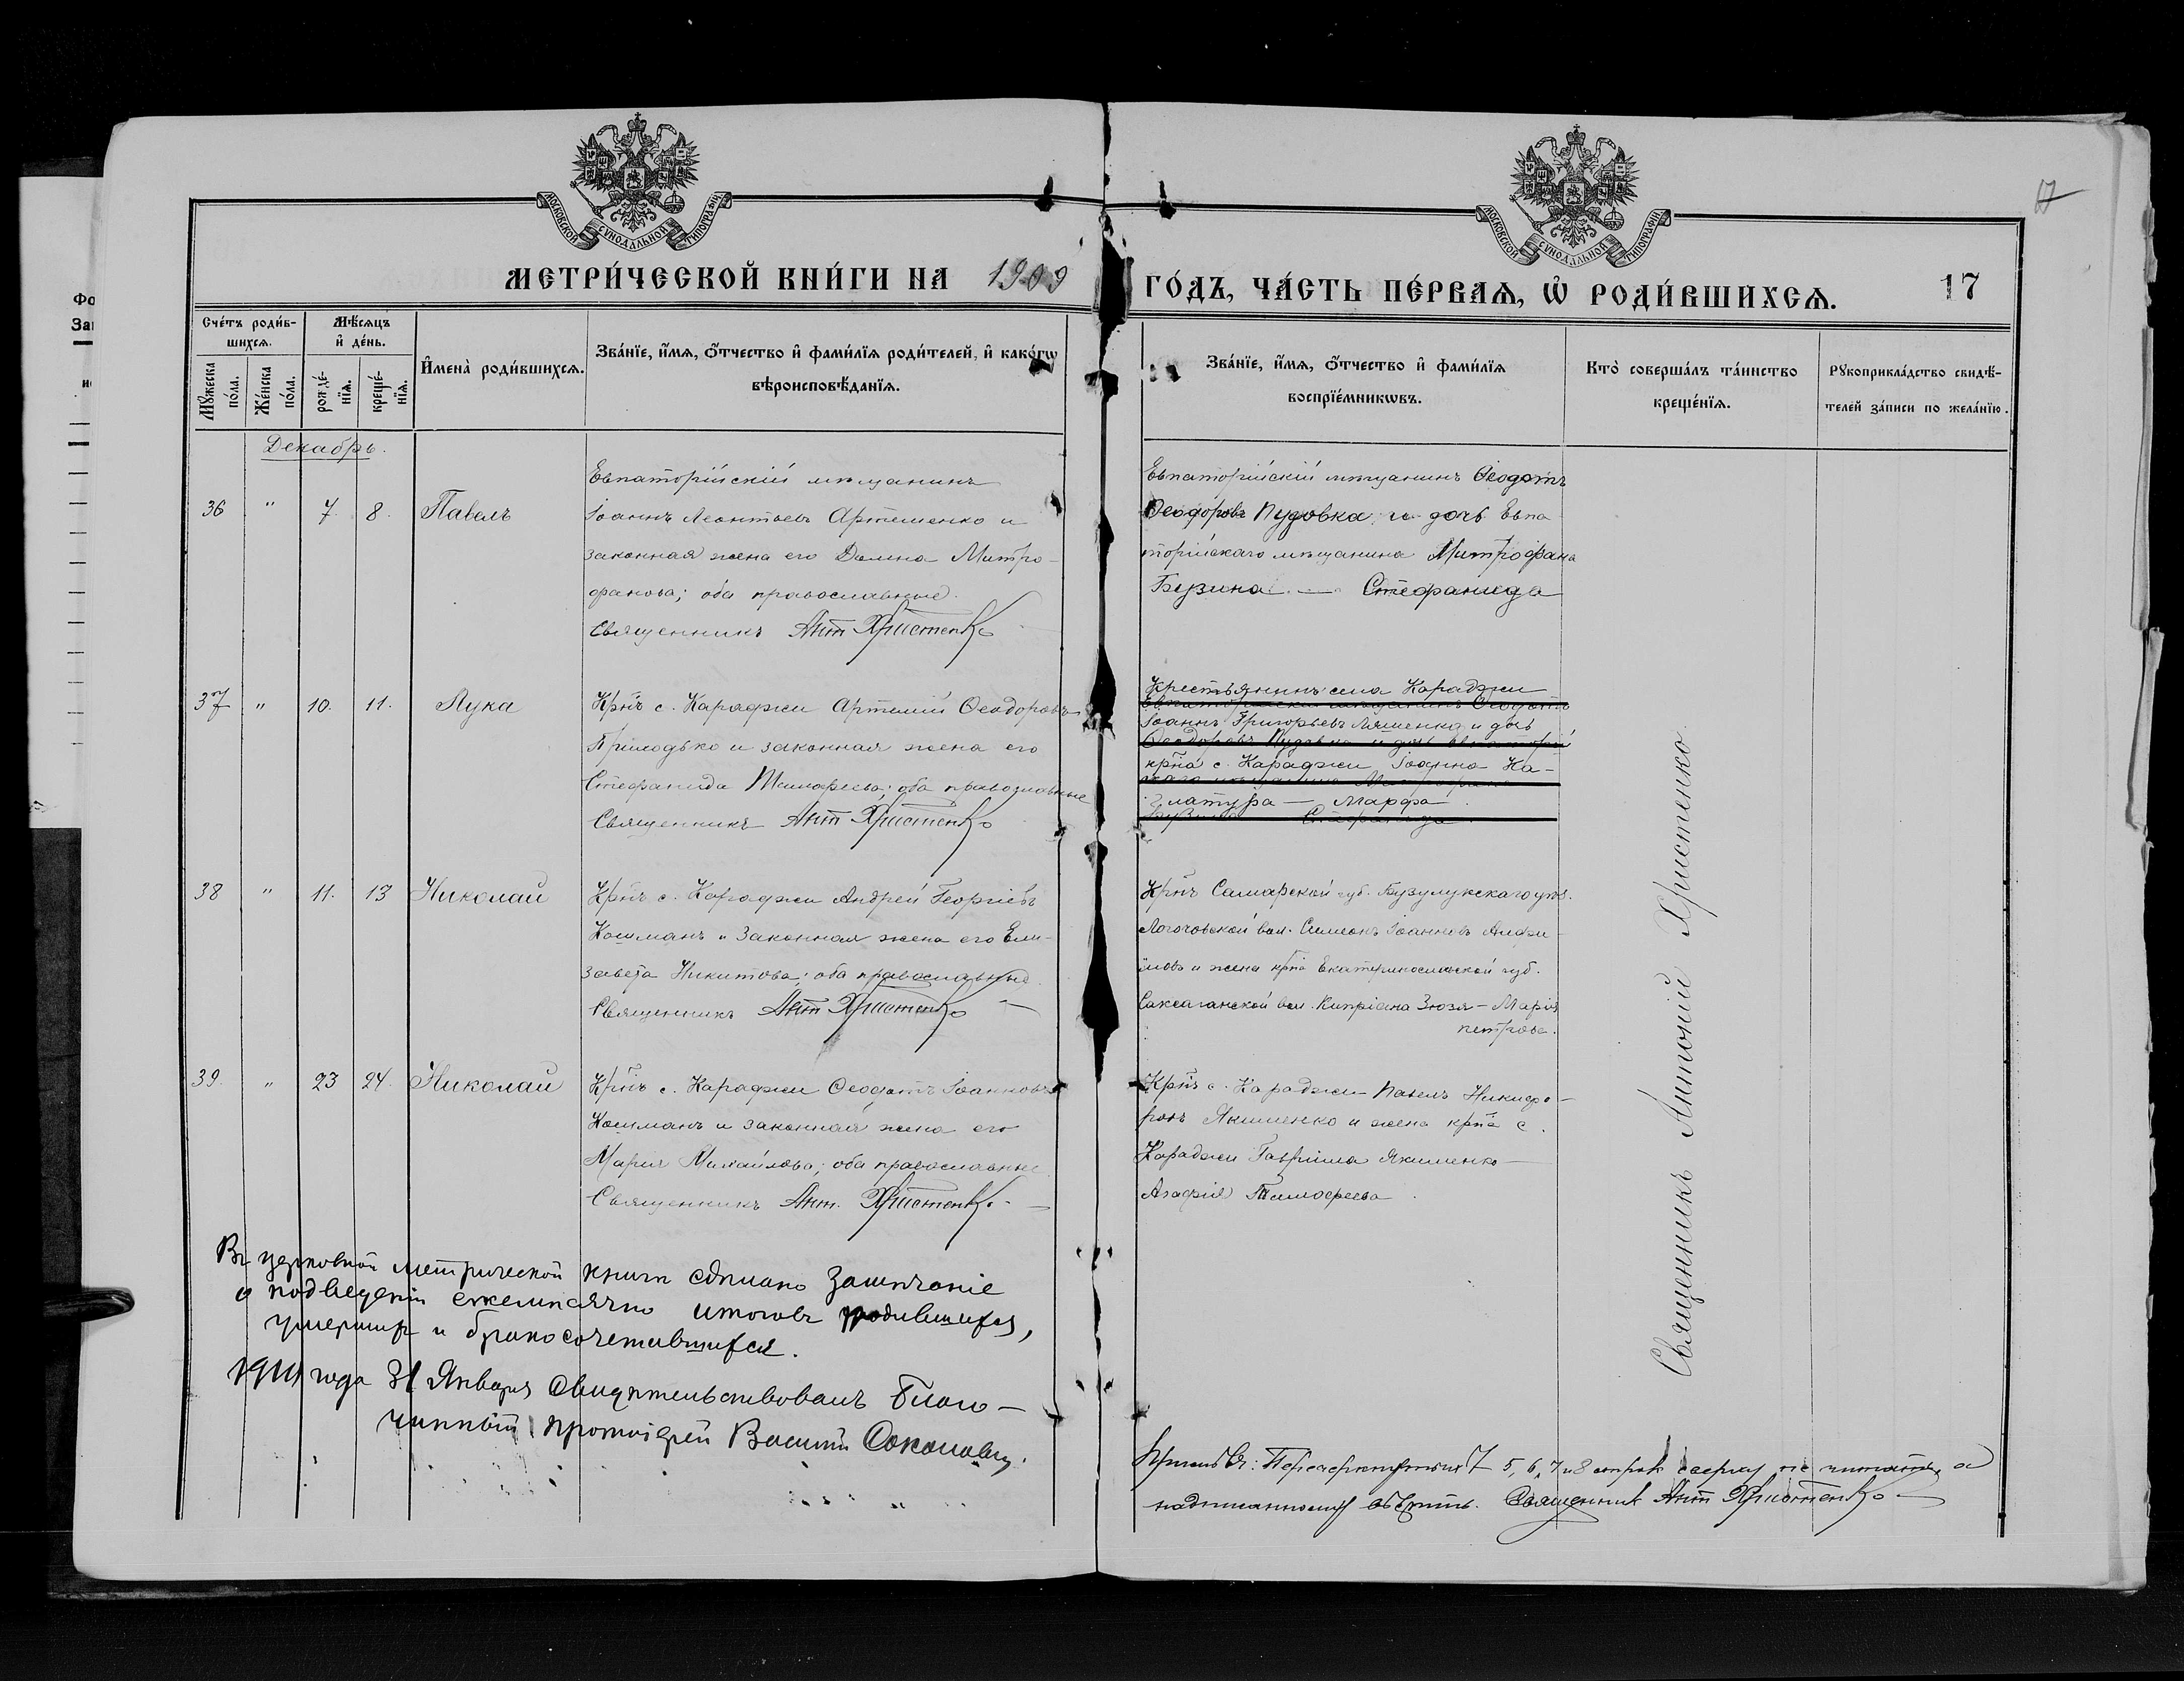 17
МОСКОВСКОЙ СѴНОДАЛЬНОЙ ТИПОГРАФІИ
МОСКОВСКОЙ СѴНОДАЛЬНОЙ ТИПОГРАФІИ
МЕТРИ́ЧЕСКОЙ КНИ́ГИ НА 1909 ГО́ДЪ, ЧА́СТЬ ПЕ́РВАѦ, Ѡ҆ РОДИ́ВШИХСѦ. 17
Сче́тъ роди́в-
шихсѧ.
Мꙋ́жеска
по́ла.
Же́нска
по́ла.
Мѣ́сѧцъ
и҆ де́нь.
рожде́-
нїѧ.
креще́-
нїѧ.
И҆мена̀ роди́вшихсѧ.
Зва́нїе, и҆́мѧ, ѻ҆́тчество и҆ фами́лїѧ роди́телей, и҆ како́гѡ
вѣроисповѣ́данїѧ.
Зва́нїе, и҆́мѧ, ѻ҆́тчество и҆ фами́лїѧ
воспрїе́мникѡвъ.
Кто̀ соверша́лъ та́инство
креще́нїѧ.
Рꙋкоприкла́дство свидѣ́-
телей за́писи по жела́нїю.
Декабрь.
36 " 7. 8. Павелъ
Евпаторійскій мѣщанинъ
Іоаннъ Леонтьевъ Артеменко и
законная жена его Домна Митро-
фанова; оба православные.
Священникъ Ант Христенко
Евпаторійскій мѣщанинъ Ѳеодотъ
Ѳеодоровъ Пудовка и дочь Евпа
торійскаго мѣщанина Митрофана
Бузина — Стефанида
37 " 10. 11. Лука
Крн̃ъ с. Караджи Артемій Ѳеодоровъ
Приходько и законная жена его
Стефанида Тимофеева; оба православные
Священникъ Ант Христенко
Крестьянинъ села Караджи
Евпаторійскій мѣщанинъ Ѳеодотъ
Іоаннъ Григорьевъ Ляшенко и дочь
Ѳеодоровъ Пудовка и дочь Евпаторій
крн̃а с. Караджи Іоанна Ка-
скаго мѣщанина Митрофана
латура — Марфа
Бузина Стефанида
38 " 11. 13 Николай
Крн̃ъ с. Караджи Андрей Георгіевъ
Кошманъ и законная жена его Ели-
завета Никитова; оба православные.
Священникъ Ант Христенко
Крн̃ъ Самарской губ. Бузулукскаго уѣз.
вол. Симеонъ Іоанновъ
и жена крн̃а Екатеринославской губ.
Саксаганской вол. Кипріана Зюзя — Марія
Петрова.
39. " 23 24. Николай
Крн̃ъ с. Караджи Ѳеодотъ Іоанновъ
Кошманъ и законная жена его
Марія Михайлова; оба православные
Священникъ Ант. Христенко
Крн̃ъ с. Караджи Павелъ Никифо-
ровъ Якименко и жена крн̃а с.
Караджи Гавріила Якименко —
Агафія Тимофеева
Священникъ Антоній Христенко
Въ церковной метрической книги сдѣлано замѣчаніе
о подведеніи ежемѣсячно итоговъ родившихся,
умершихъ и бракосочетавшихся.
года 31 Января свидѣтельствовалъ Благо-
чинный протоіерей Василій Соколовъ.
Примѣч: Перечеркнутыхъ 5, 6, 7 и 8 строкъ сверху не читать, а
надписанному вѣрить. Священникъ Ант Христенко